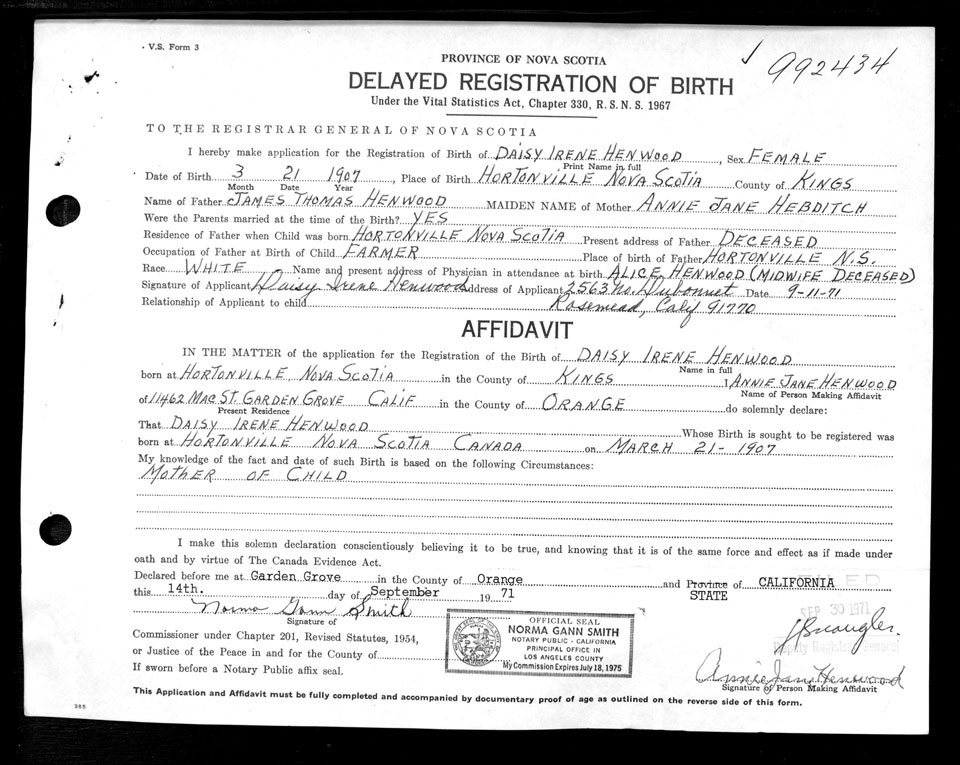 V.S. Form 3
992434
PROVINCE OF NOVA SCOTIA
DELAYED REGISTRATION OF BIRTH
Under the Vital Statistics Act, Chapter 330, R.S.N.S. 1967
TO THE REGISTRAR GENERAL OF NOVA SCOTIA
I hereby make application for the Registration of Birth of DAISY IRENE HENWOOD, Sex FEMALE
Print Name in full
Date of Birth 3 21 1907, Place of Birth HORTONVILLE NOVA SCOTIA County of KINGS
Month Date Year
Name of Father JAMES THOMAS HENWOOD MAIDEN NAME of Mother ANNIE JANE HEBDITCH
Were the Parents married at the time of the Birth? YES
Residence of Father when Child was born HORTONVILLE NOVA SCOTIA Present address of Father DECEASED
Occupation of Father at Birth of Child FARMER Place of birth of Father HORTONVILLE N.S.
Race WHITE Name and present address of Physician in attendance at birth ALICE HENWOOD (MIDWIFE DECEASED)
Signature of Applicant Daisy Irene Henwood Address of Applicant 2563 No. Dubonnet Date 9-11-71
Relationship of Applicant to child Rosemead, Calif 91770
AFFIDAVIT
IN THE MATTER of the application for the Registration of the Birth of DAISY IRENE HENWOOD
Name in full
born at HORTONVILLE, NOVA SCOTIA in the County of KINGS I ANNIE JANE HENWOOD
Name of Person Making Affidavit
of 11462 MAC ST. GARDEN GROVE CALIF in the County of ORANGE do solemnly declare:
Present Residence
That DAISY IRENE HENWOOD Whose Birth is sought to be registered was
born at HORTONVILLE NOVA SCOTIA CANADA on MARCH 21-1907
My knowledge of the fact and date of such Birth is based on the following Circumstances:
MOTHER OF CHILD
I make this solemn declaration conscientiously believing it to be true, and knowing that it is of the same force and effect as if made under
oath and by virtue of The Canada Evidence Act.
Declared before me at Garden Grove in the County of Orange and Province of CALIFORNIA
this 14th. day of September 1971 STATE
SEP 30 1971
Norma Gann Smith
Signature of
Commissioner under Chapter 201, Revised Statutes, 1954,
or Justice of the Peace in and for the County of
If sworn before a Notary Public affix seal.
OFFICIAL SEAL
NORMA GANN SMITH
NOTARY PUBLIC - CALIFORNIA
PRINCIPAL OFFICE IN
LOS ANGELES COUNTY
My Commission Expires July 18, 1975
Deputy Registrar General
Annie Jane Henwood
Signature of Person Making Affidavit
This Application and Affidavit must be fully completed and accompanied by documentary proof of age as outlined on the reverse side of this form.